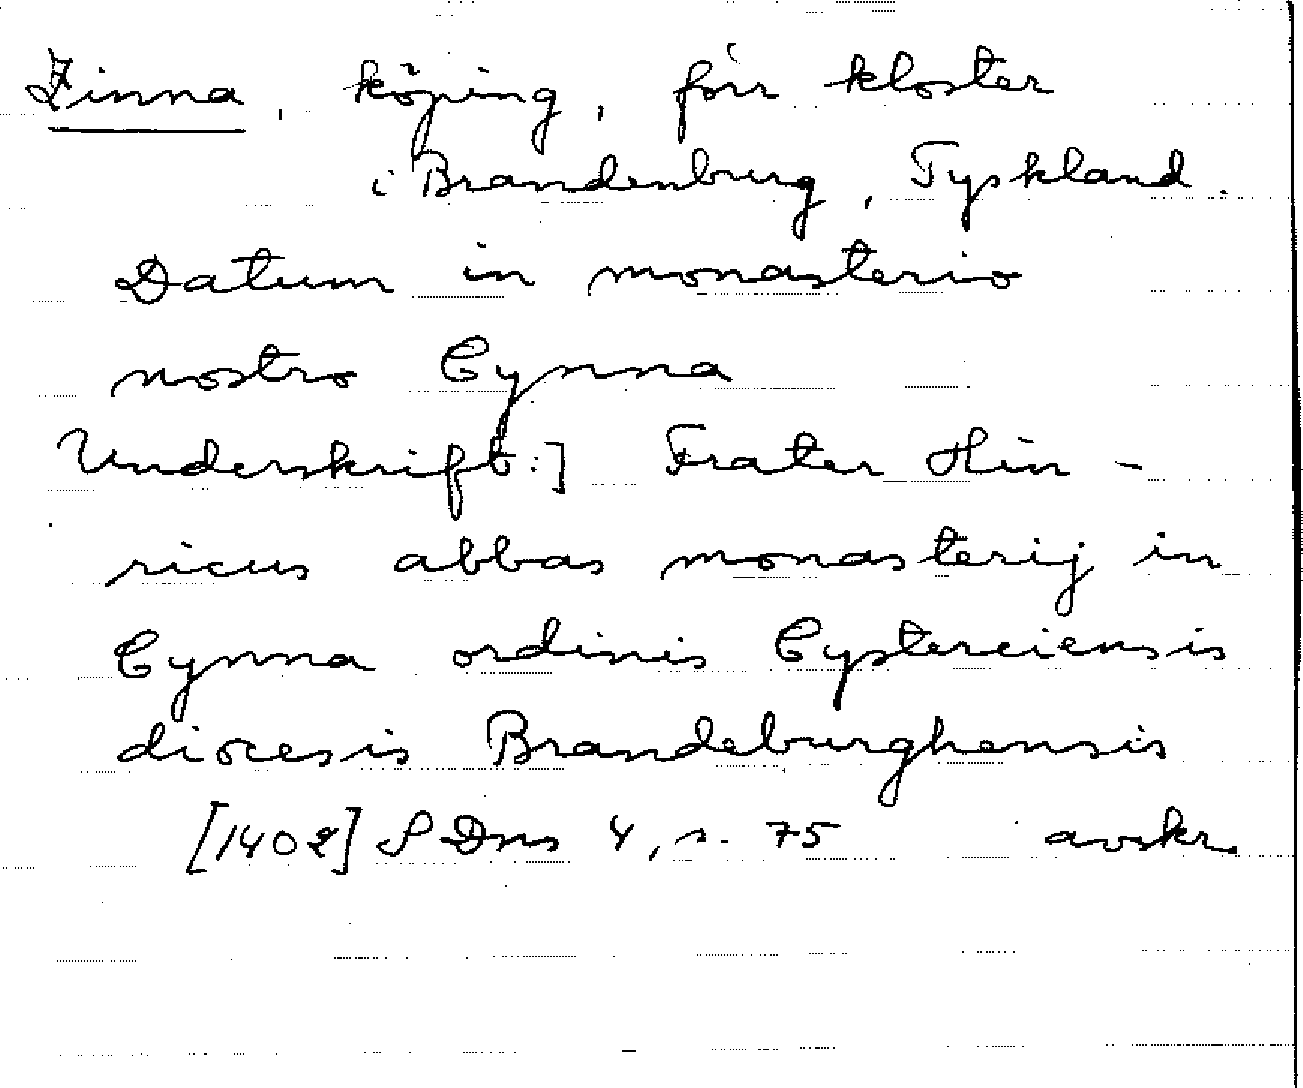 Zinna, köping, förr kloster
i Brandenburg, Tyskland.
Datum in monasterio
nostro Cynna
Underskrift:] Frater Hin-
ricus abbas monasterij in
Cynna ordinis Cysterciensis
diocesis Brandeburghensis
[1402] SDns 4, s. 75 avskr.